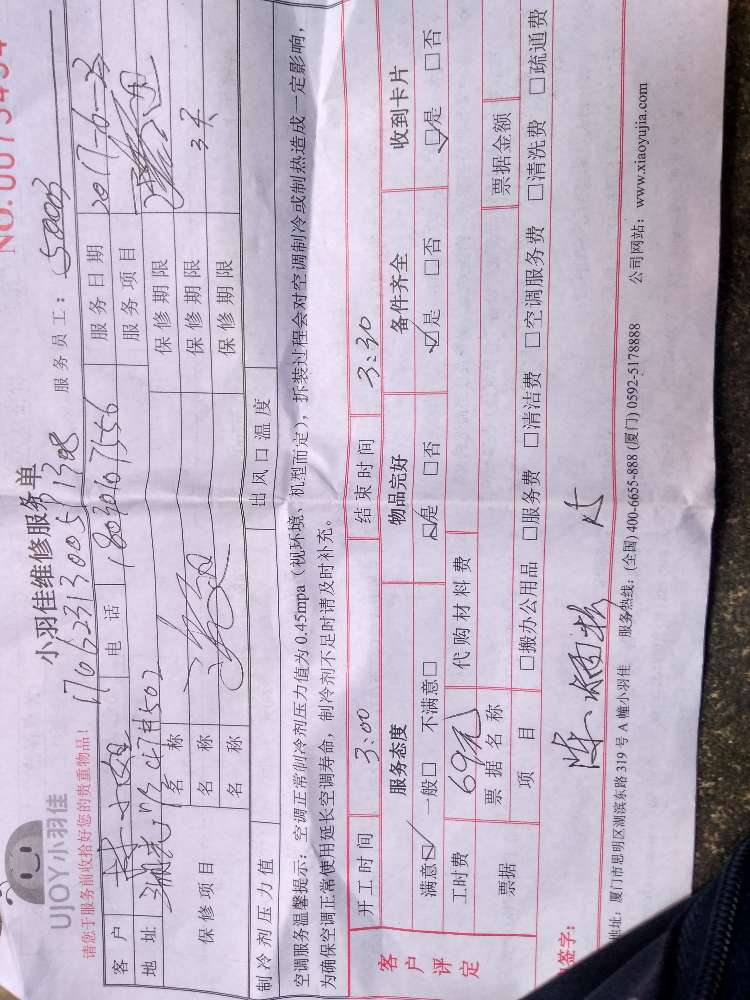 NO.0075454
UJOY小羽佳
小羽佳维修服务单
请您于服务前收拾好您的贵重物品!
服务员工:
客户 电话 服务日期 2017-6-
地址 服务项目
保修项目 名称 保修期限
名称 保修期限 3天
名称 保修期限
制冷剂压力值 出风口温度
空调服务温馨提示:空调正常制冷剂压力值为0.45mpa(视环境、机型而定),拆装过程会对空调制冷或制热造成一定影响,
为确保空调正常使用延长空调寿命,制冷剂不足时请及时补充。
开工时间 3:00 结束时间 3:30
客户评定
服务态度 物品完好 备件齐全 收到卡片
满意☑ 一般□ 不满意□ ☑是 □否 ☑是 □否 ☑是 □否
工时费 69元 代购材料费
票据 票据名称 票据金额
项目 □搬办公用品 □服务费 □清洁费 □空调服务费 □清洗费 □疏通费
签字:
地址:厦门市思明区湖滨东路319号A幢小羽佳 服务热线:(全国)400-6655-888 (厦门) 0592-5178888 公司网站:www.xiaoyujia.com